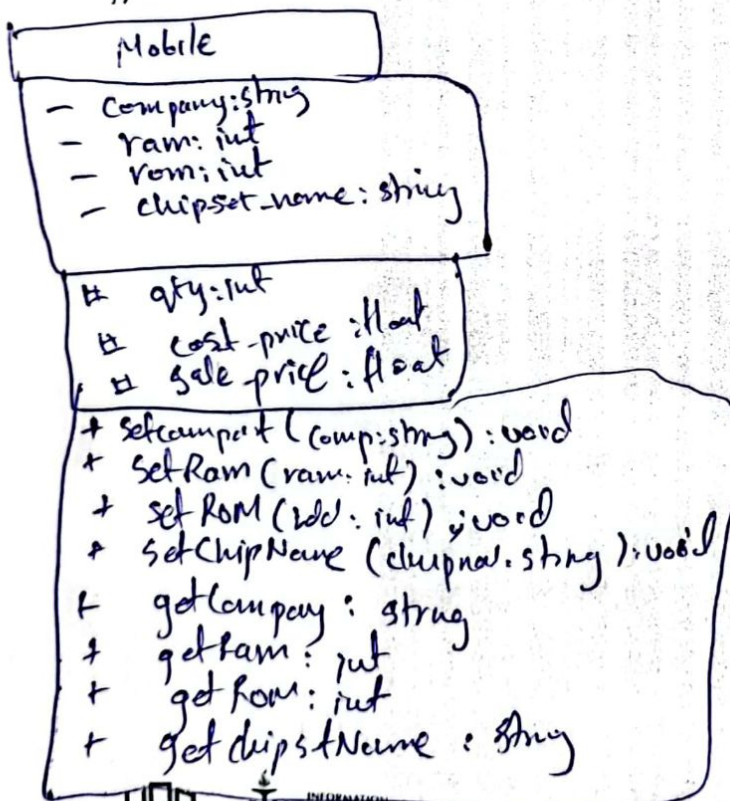 Mobile
- company:string
- ram: int
- rom: int
- chipset_name: string
# qty: int
# cost_price: float
# sale_price: float
+ setcompart (comp:string): void
+ setRam (ram: int): void
+ set ROM ( : int): void
+ setChipName ( : string): void
+ getCompany: string
+ getRam: int
+ getRom: int
+ getchipstName: string
INFORMATION